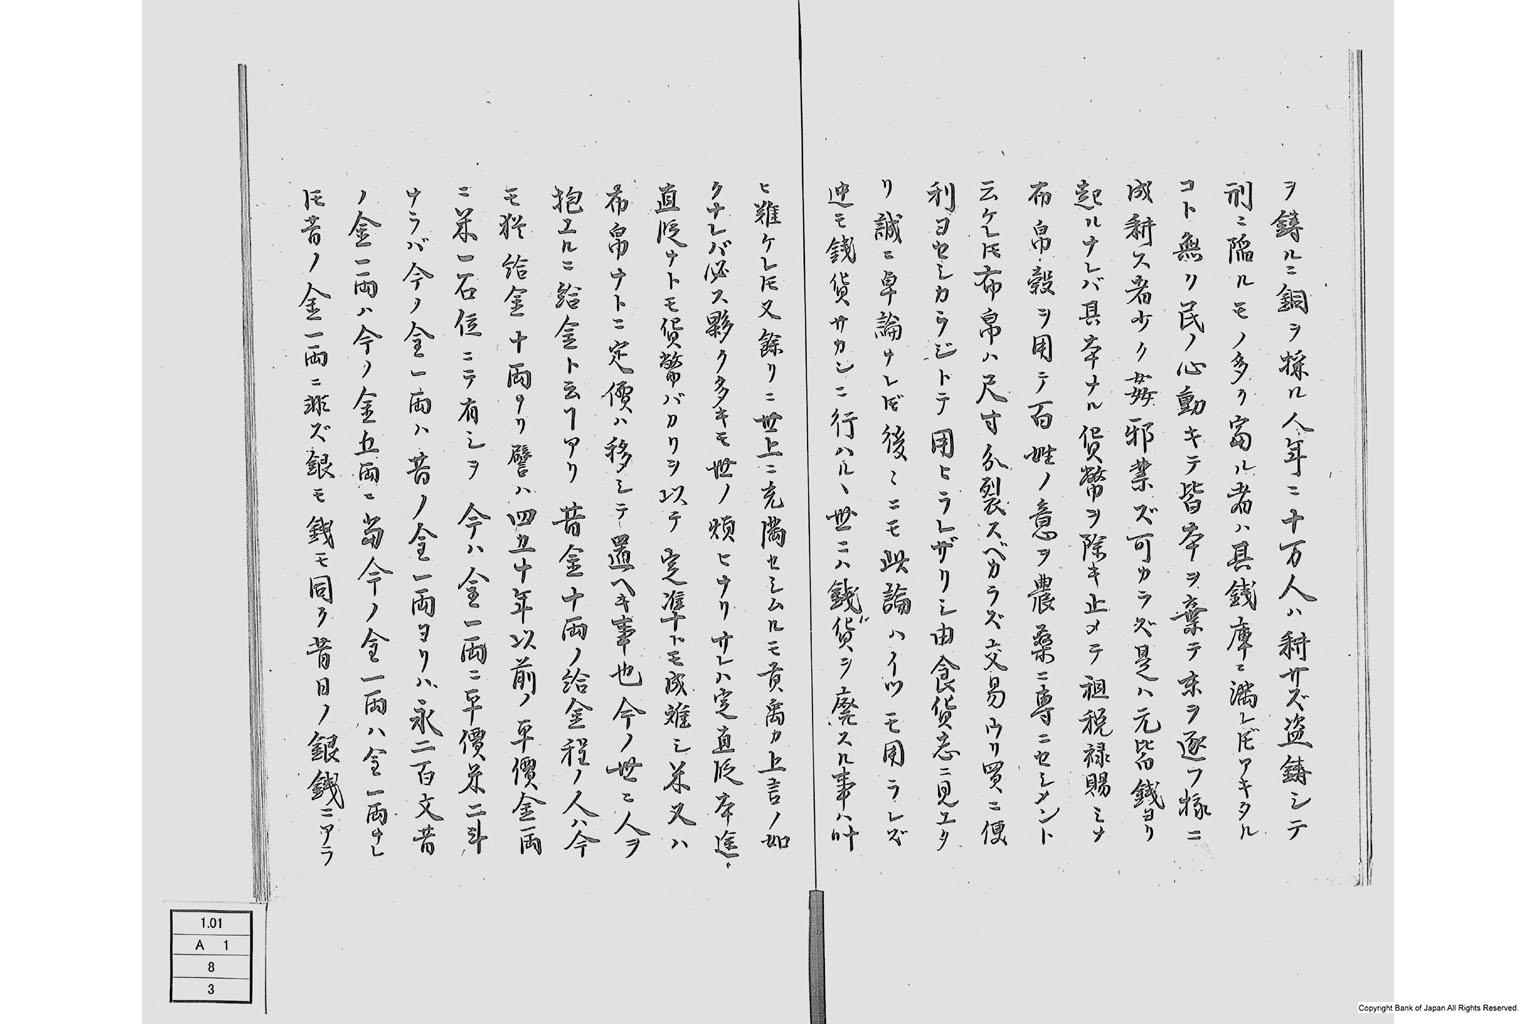 ヲ鑄ルニ銅ヲ採ル人年ニ十万人ハ耕サズ盗鑄シテ
刑ニ陥ルモノ多ク富ル者ハ其錢庫ニ満レ𪜈アキタル
コト無リ民ノ心動キテ皆本ヲ棄テ末ヲ逐フ様ニ
成耕ス者少ク姦邪禁ズ可カラズ是ハ元皆錢ヨリ
起ルナレバ其本ナル貨幣ヲ除キ止メテ祖税禄賜ミナ
布帛穀ヲ用テ百姓ノ意ヲ農桑ニ専ニセシメント
云ケレ𪜈布帛ハ尺寸分裂スベカラズ交易ウリ買ニ便
利ヨロシカラジトテ用ヒラレザリシ由食貨志ニ見エタ
リ誠ニ卓論ナレ𪜈後〻ニモ此論ハイツモ用ラレズ
迚モ錢貨サカンニ行ハルヽ世ニハ錢貨ヲ廢スル事ハ叶
ヒ難ケレ𪜈又餘リニ世上ニ充満セシムルモ貢禹カ上言ノ如
クナレバ必ス夥ク多キモ世ノ煩ヒナリサレハ定直段本途
直段ナトモ貨幣バカリヲ以テ定準ナトモ成難シ米又ハ
布帛ナトニ定價ハ移シテ置ヘキ事也今ノ世ニ人ヲ
抱エルニ給金ト云ヿアリ昔金十両ノ給金程ノ人ハ今
モ猶給金十両ナリ譬ハ四五十年以前ノ平價金一両
ニ米一石位ニテ有シヲ今ハ金一両ニ平價米二斗
ナラバ今ノ金一両ハ昔ノ金一両ヨリハ永二百文昔
ノ金一両ハ今ノ金五両ニ當今ノ金一両ハ金一両ナレ
𪜈昔ノ金一両ニ非ズ銀モ錢モ同ク昔日ノ銀錢ニアラ
1.01
A 1
8
3
Copyright Bank of Japan All Rights Reserved.